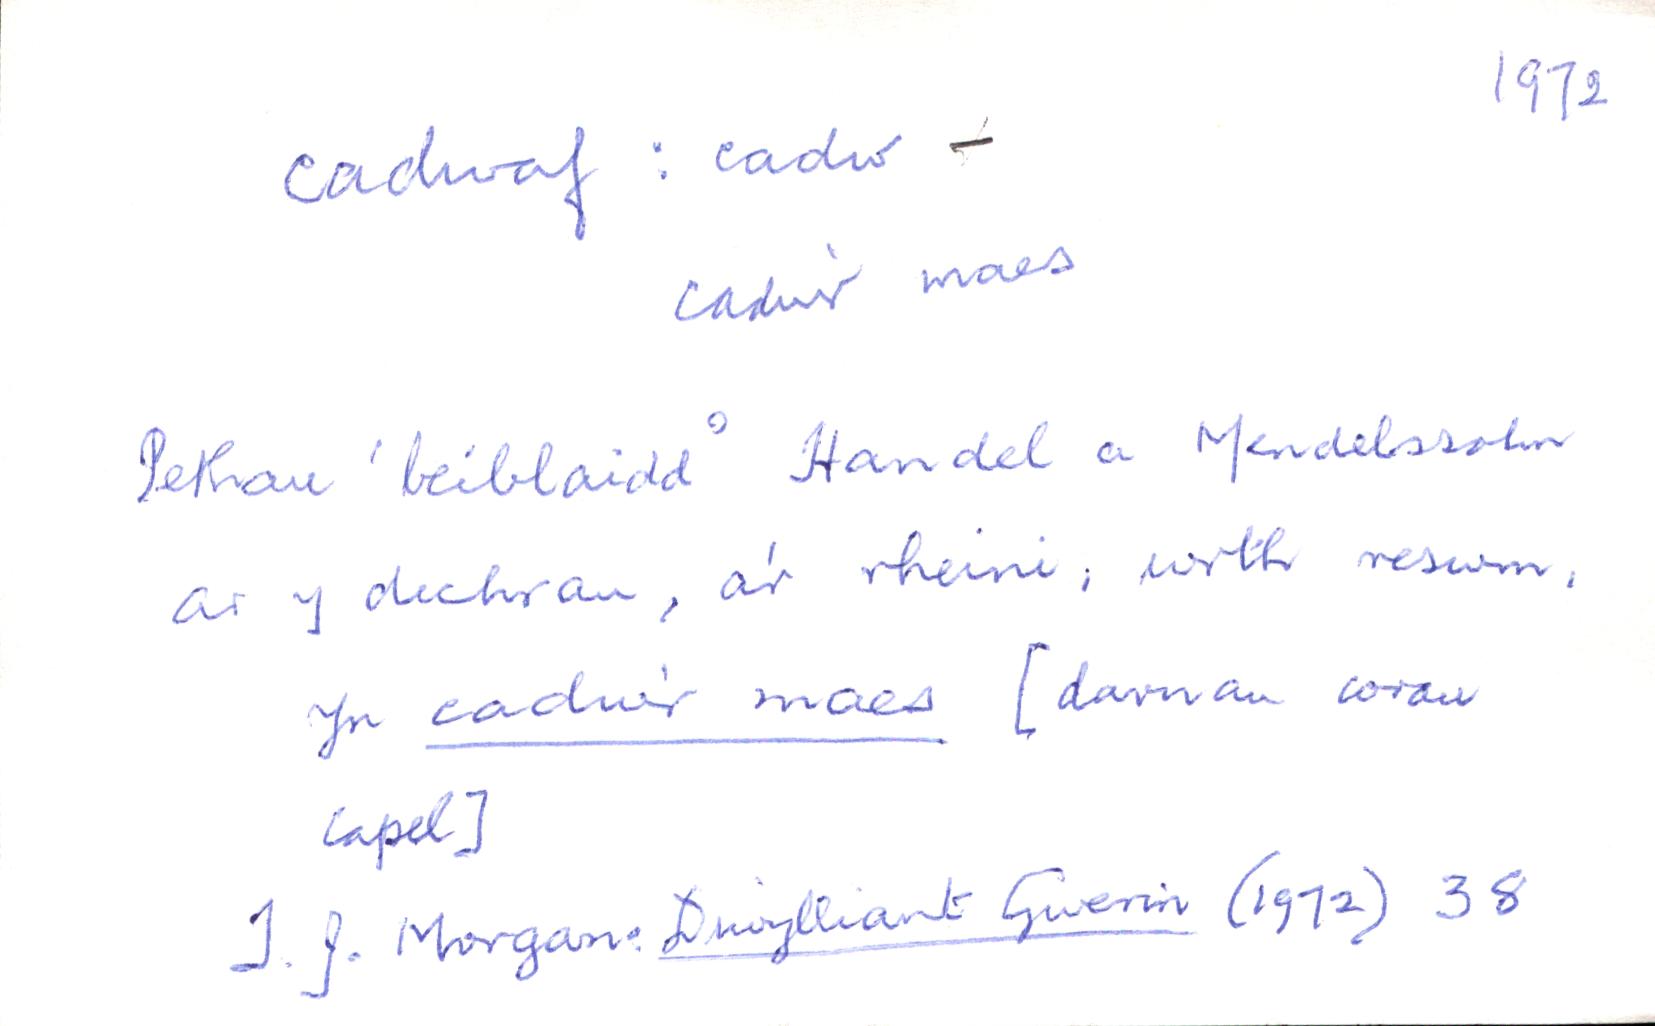 1972
cadwaf : cadw –
cadw'r maes
Pethau 'beiblaidd' Handel a Mendelssohn
ar y dechrau, a'r rheini, wrth reswm,
yn cadw'r maes [darnau corau
capel]
T. J. Morgan: Diwylliant Gwerin (1972) 38